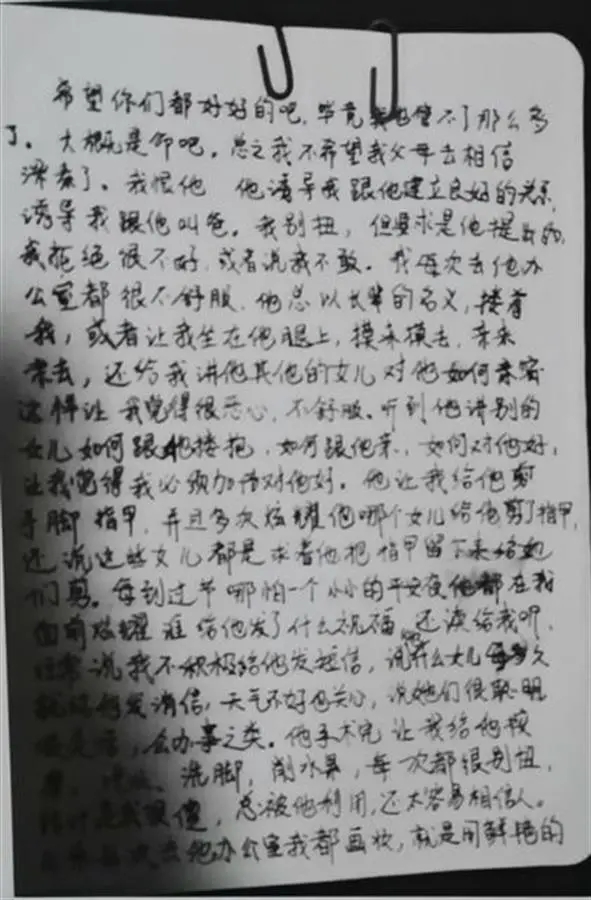 希望你们都好好的吧，毕竟我也管不了那么多
了。大概是命吧。总之我不希望我父母去相信
我恨他 他诱导我跟他建立良好的关系,
诱导我跟他叫爸。我别扭，但要求是他提出的,
我拒绝很不好，或者说我不敢。我每次去他办
公室都很不舒服，他总以长辈的名义，搂着
我，或者让我坐在他腿上，摸来摸去，亲来
亲去，还给我讲他其他的女儿对他如何亲密
这样让我觉得很恶心，不舒服。听到他讲别的
女儿如何跟他搂抱，如何跟他亲，如何对他好,
让我觉得我必须加倍对他好。他让我给他剪
手脚指甲，并且多次炫耀他哪个女儿给他剪了指甲,
还说这些女儿都是求着他把指甲留下来给她
们剪。每到过节哪怕一个小小的平安夜他都在我
面前炫耀谁给他发了什么祝福，还读给我听，
经常说我不积极给他发短信，说什么女儿每多久
发消信，天气不好也关心，说她们很聪明
会办事之类。他手术完让我给他按
洗脚，削水果，每次都很别扭，
是我很傻，总被他利用，还太容易相信人。
次去他办公室我都画妆，就是用鲜艳的